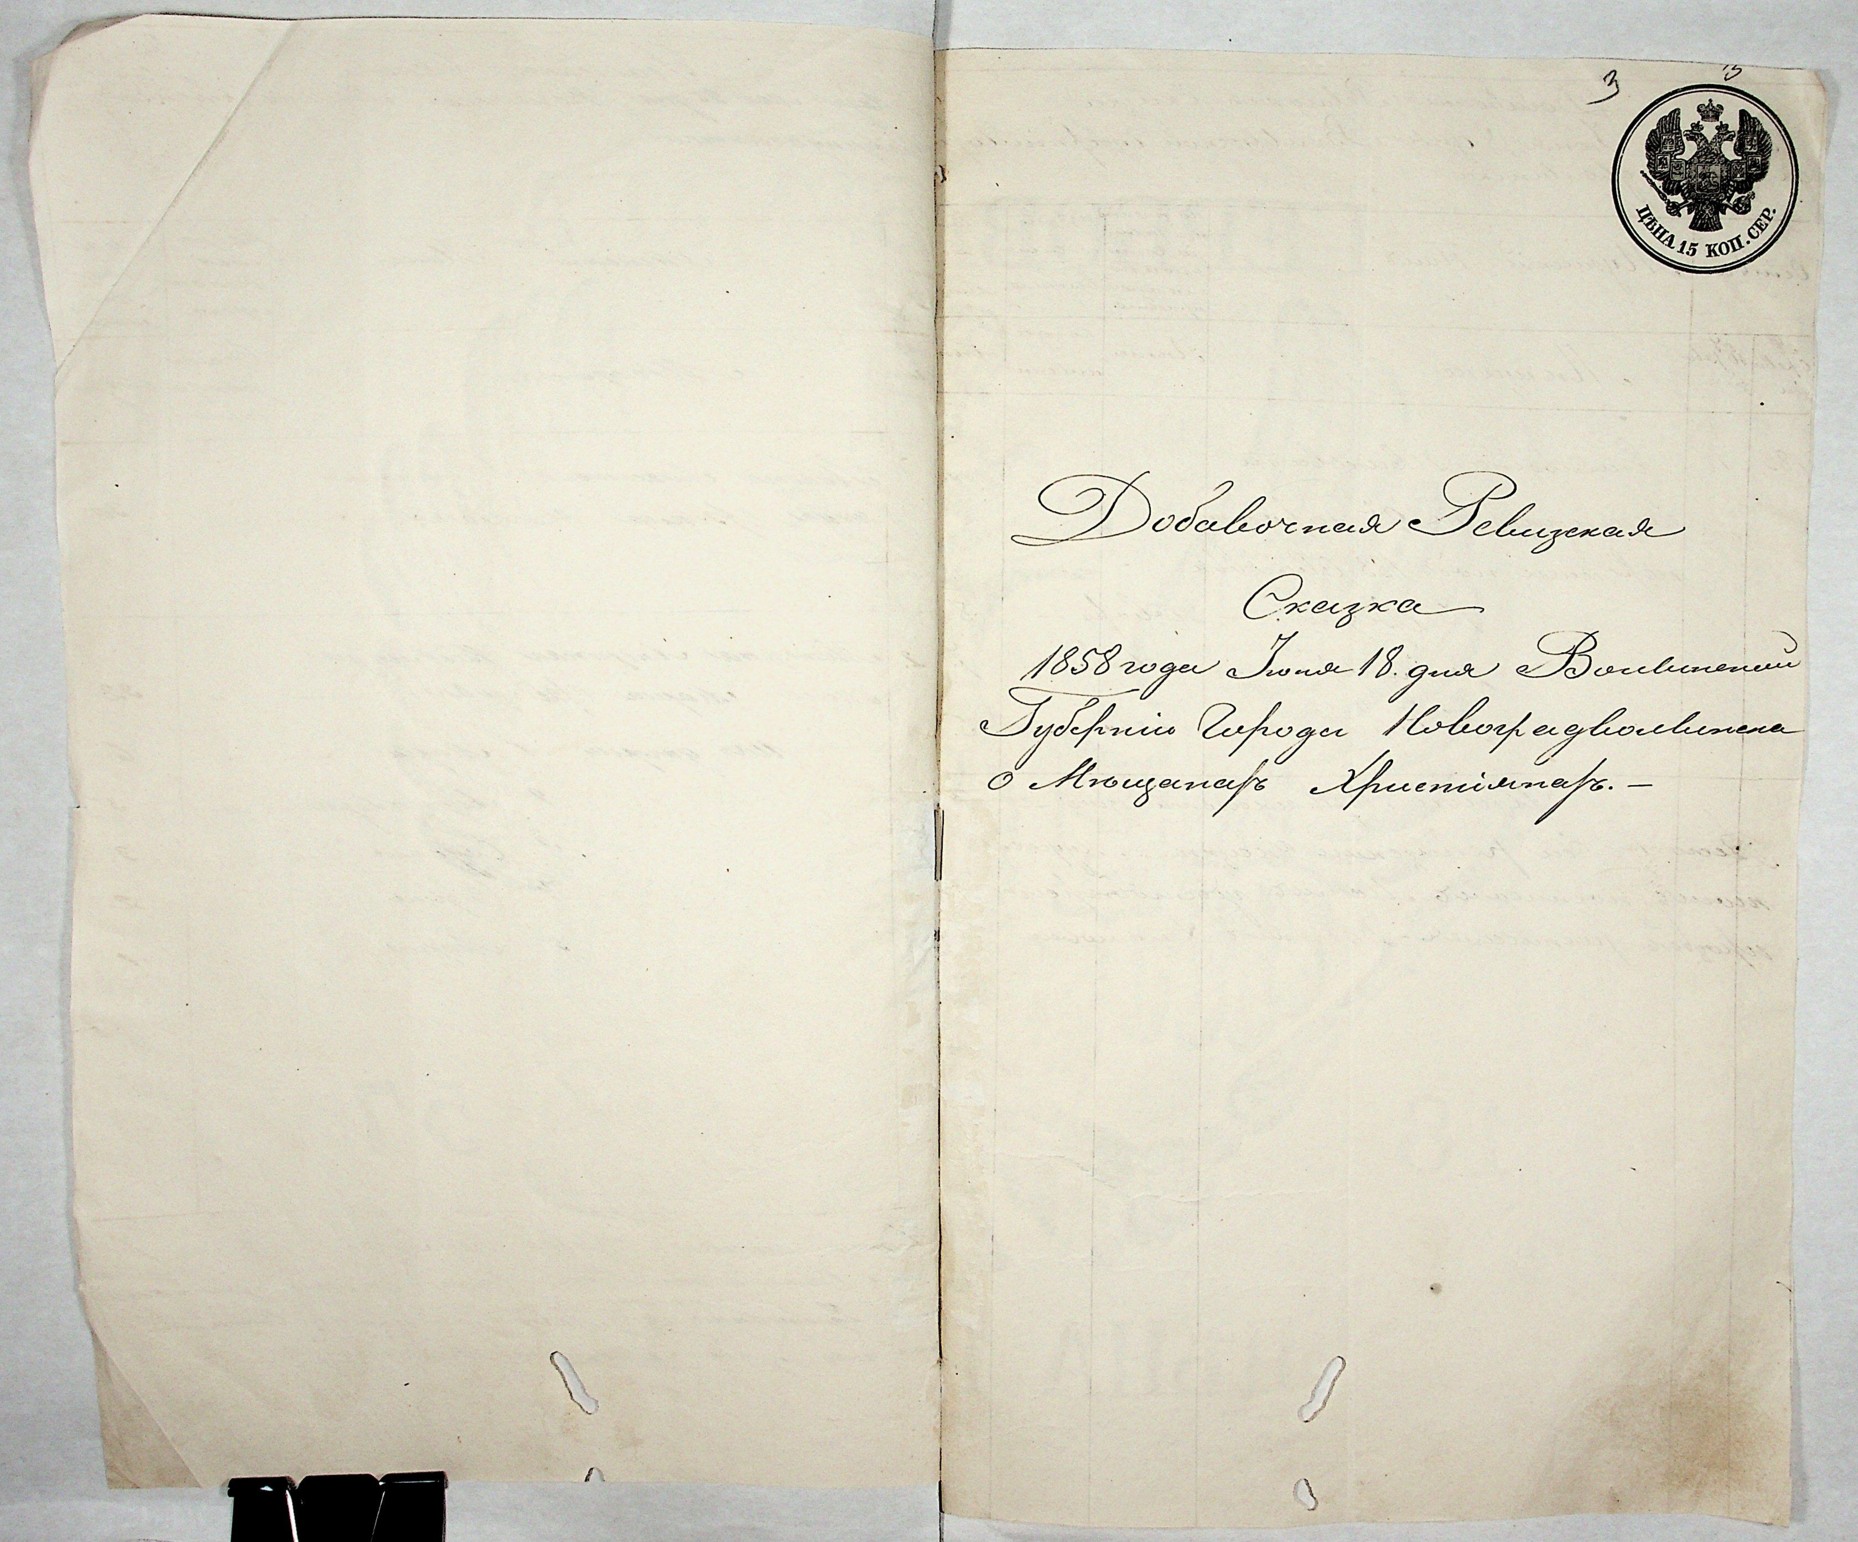 3
15
ЦѢНА 15 КОП. СЕР.
Добавочная Ревизская
Сказка
1858 года Іюня 18. дня Волынской
Губерніи Города Новоградволынска
о Мѣщанахъ Христіянахъ. —